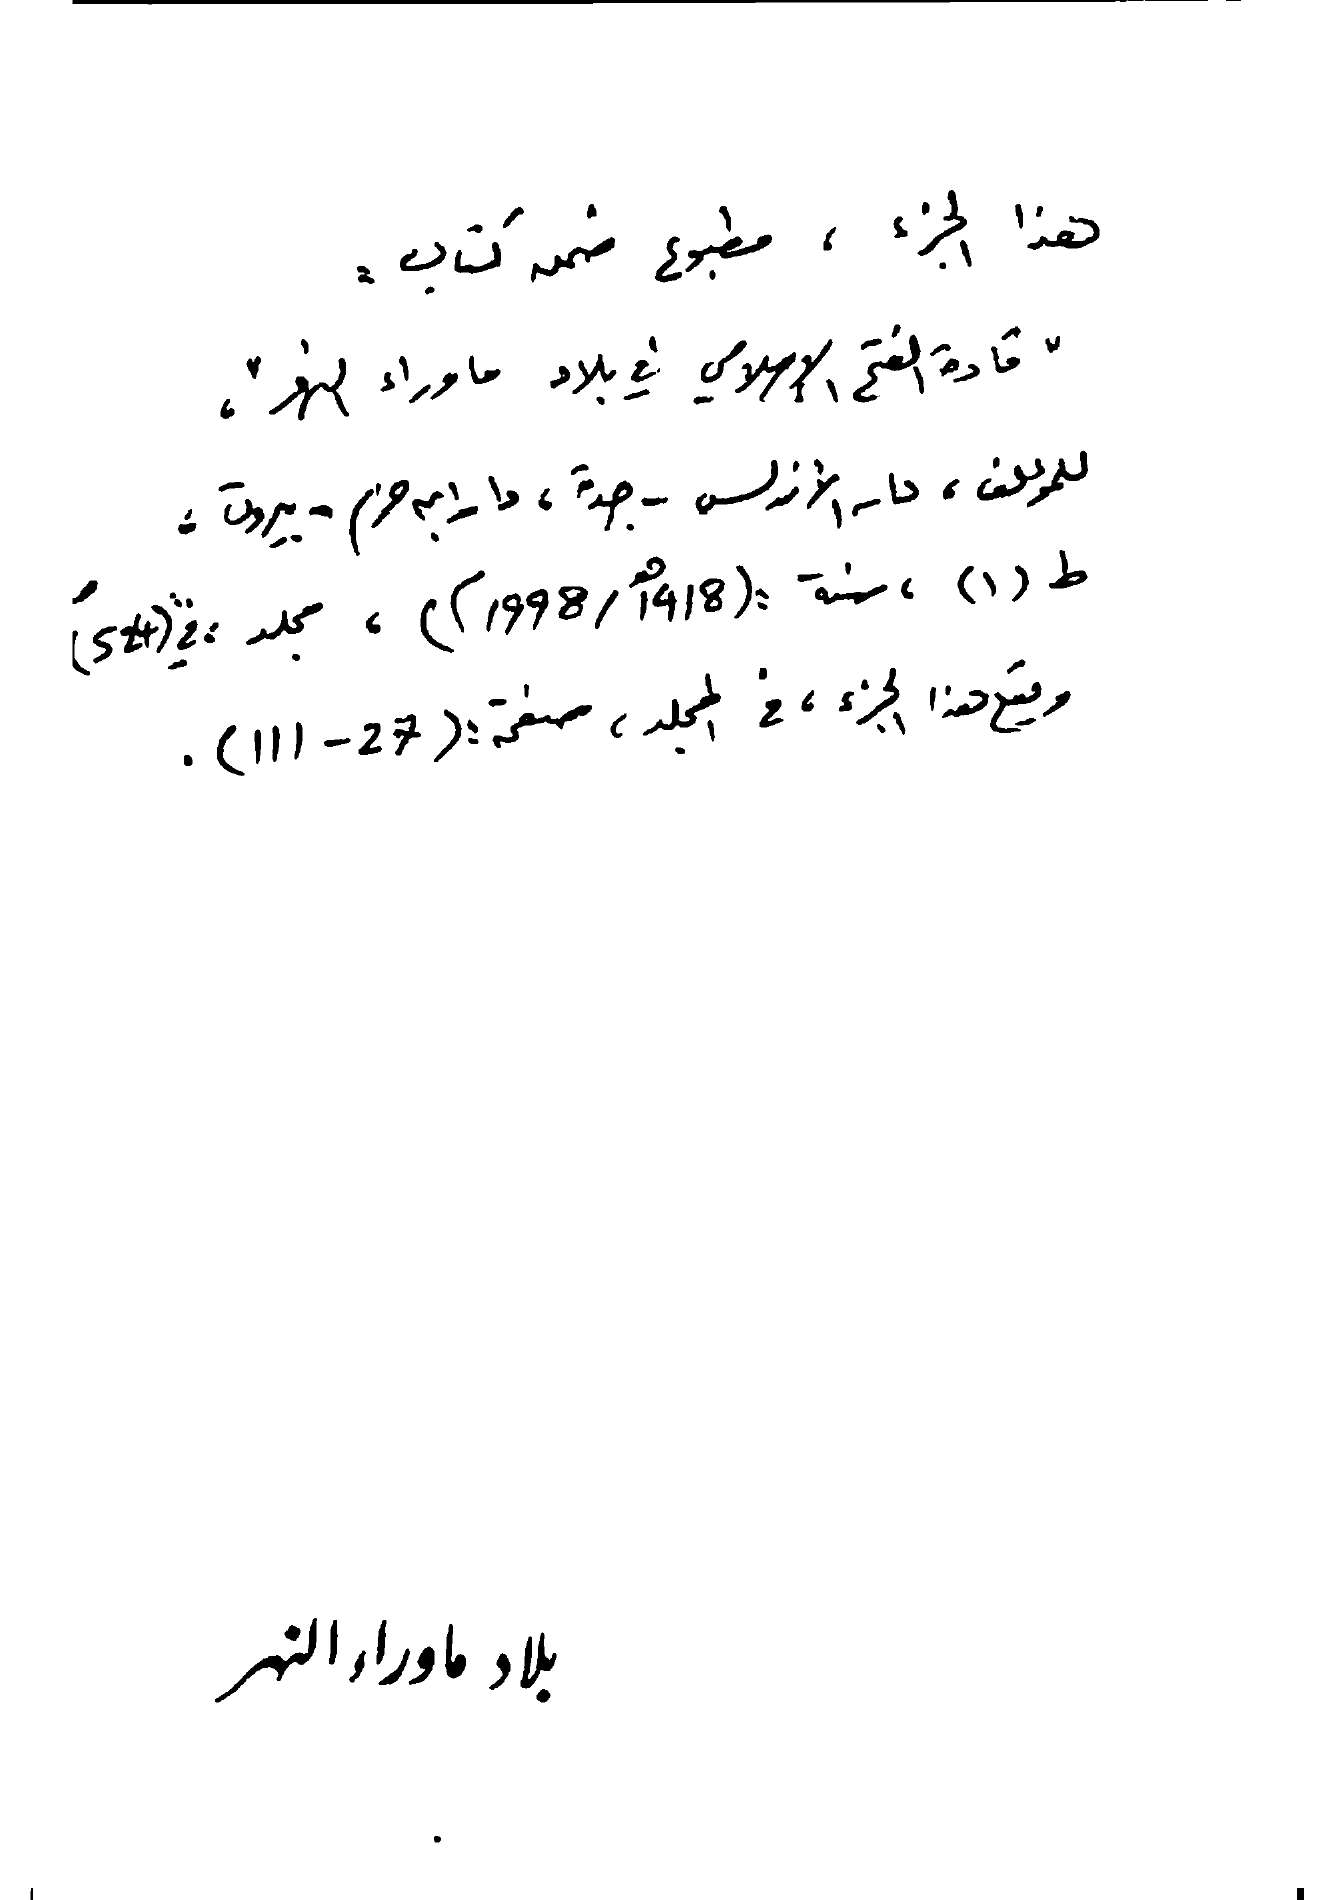 هذا الجزء ، مطبوع ضمن كتاب :
"قادة الفتح الإسلامي في بلاد ما وراء النهر" ،
للمؤلف ، دار الأندلس - جدة ، دار ابن حزم - بيروت ،
ط (١) ، سنة : (1418هـ / 1998م) ، مجلد ، في : (524)
ويقع هذا الجزء ، في المجلد ، صفحة : (27 - 111) .
بلاد ما وراء النهر